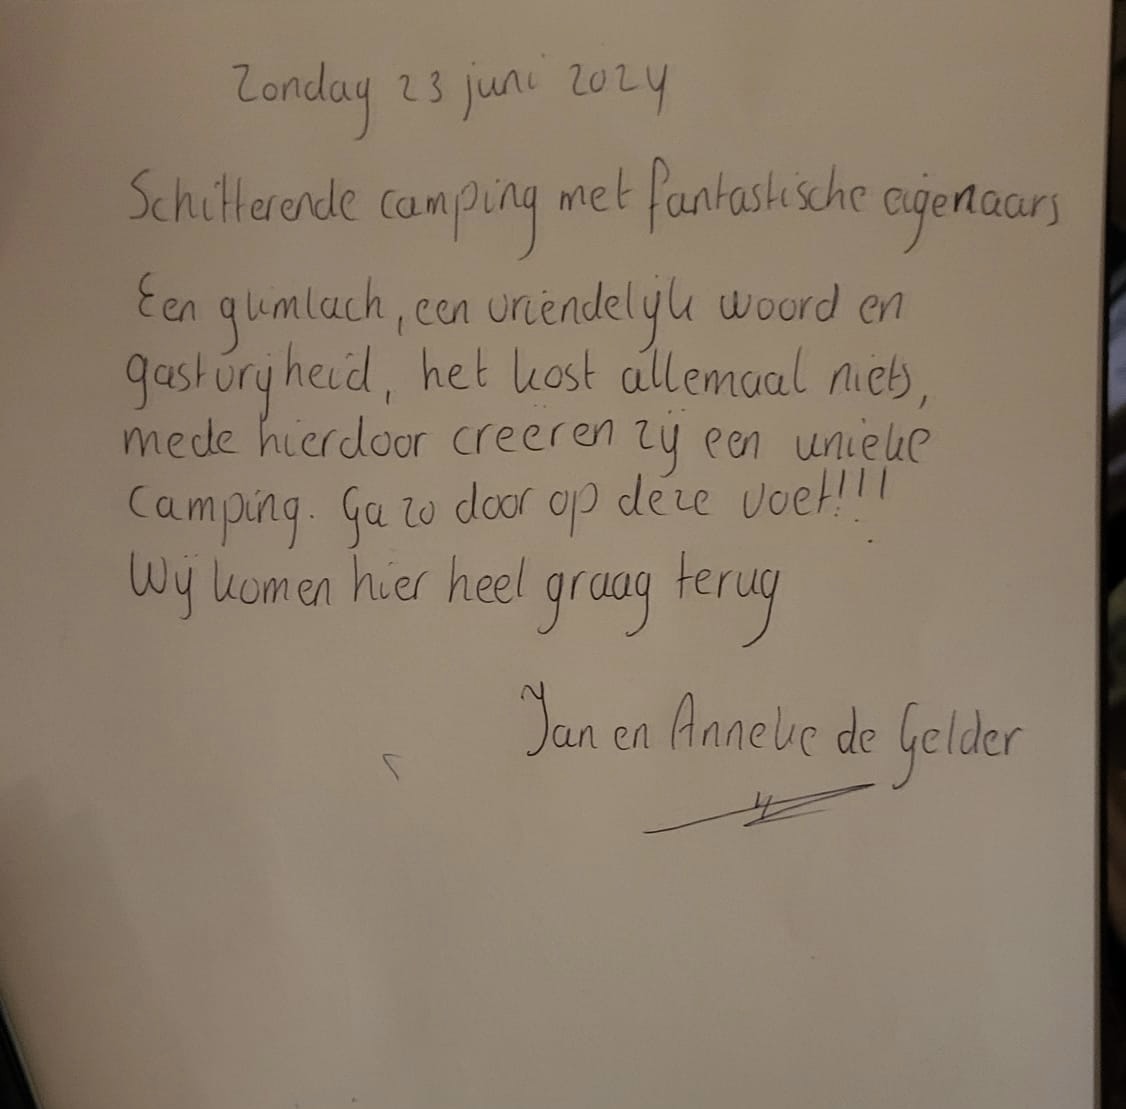 Zondag 23 juni 2024
Schitterende camping met fantastische eigenaars
Een glimlach, een vriendelijk woord en
gastvrijheid, het kost allemaal niets,
mede hierdoor creëren zij een unieke
camping. Ga zo door op deze voet!!!
Wij komen hier heel graag terug
Jan en Anneke de Gelder